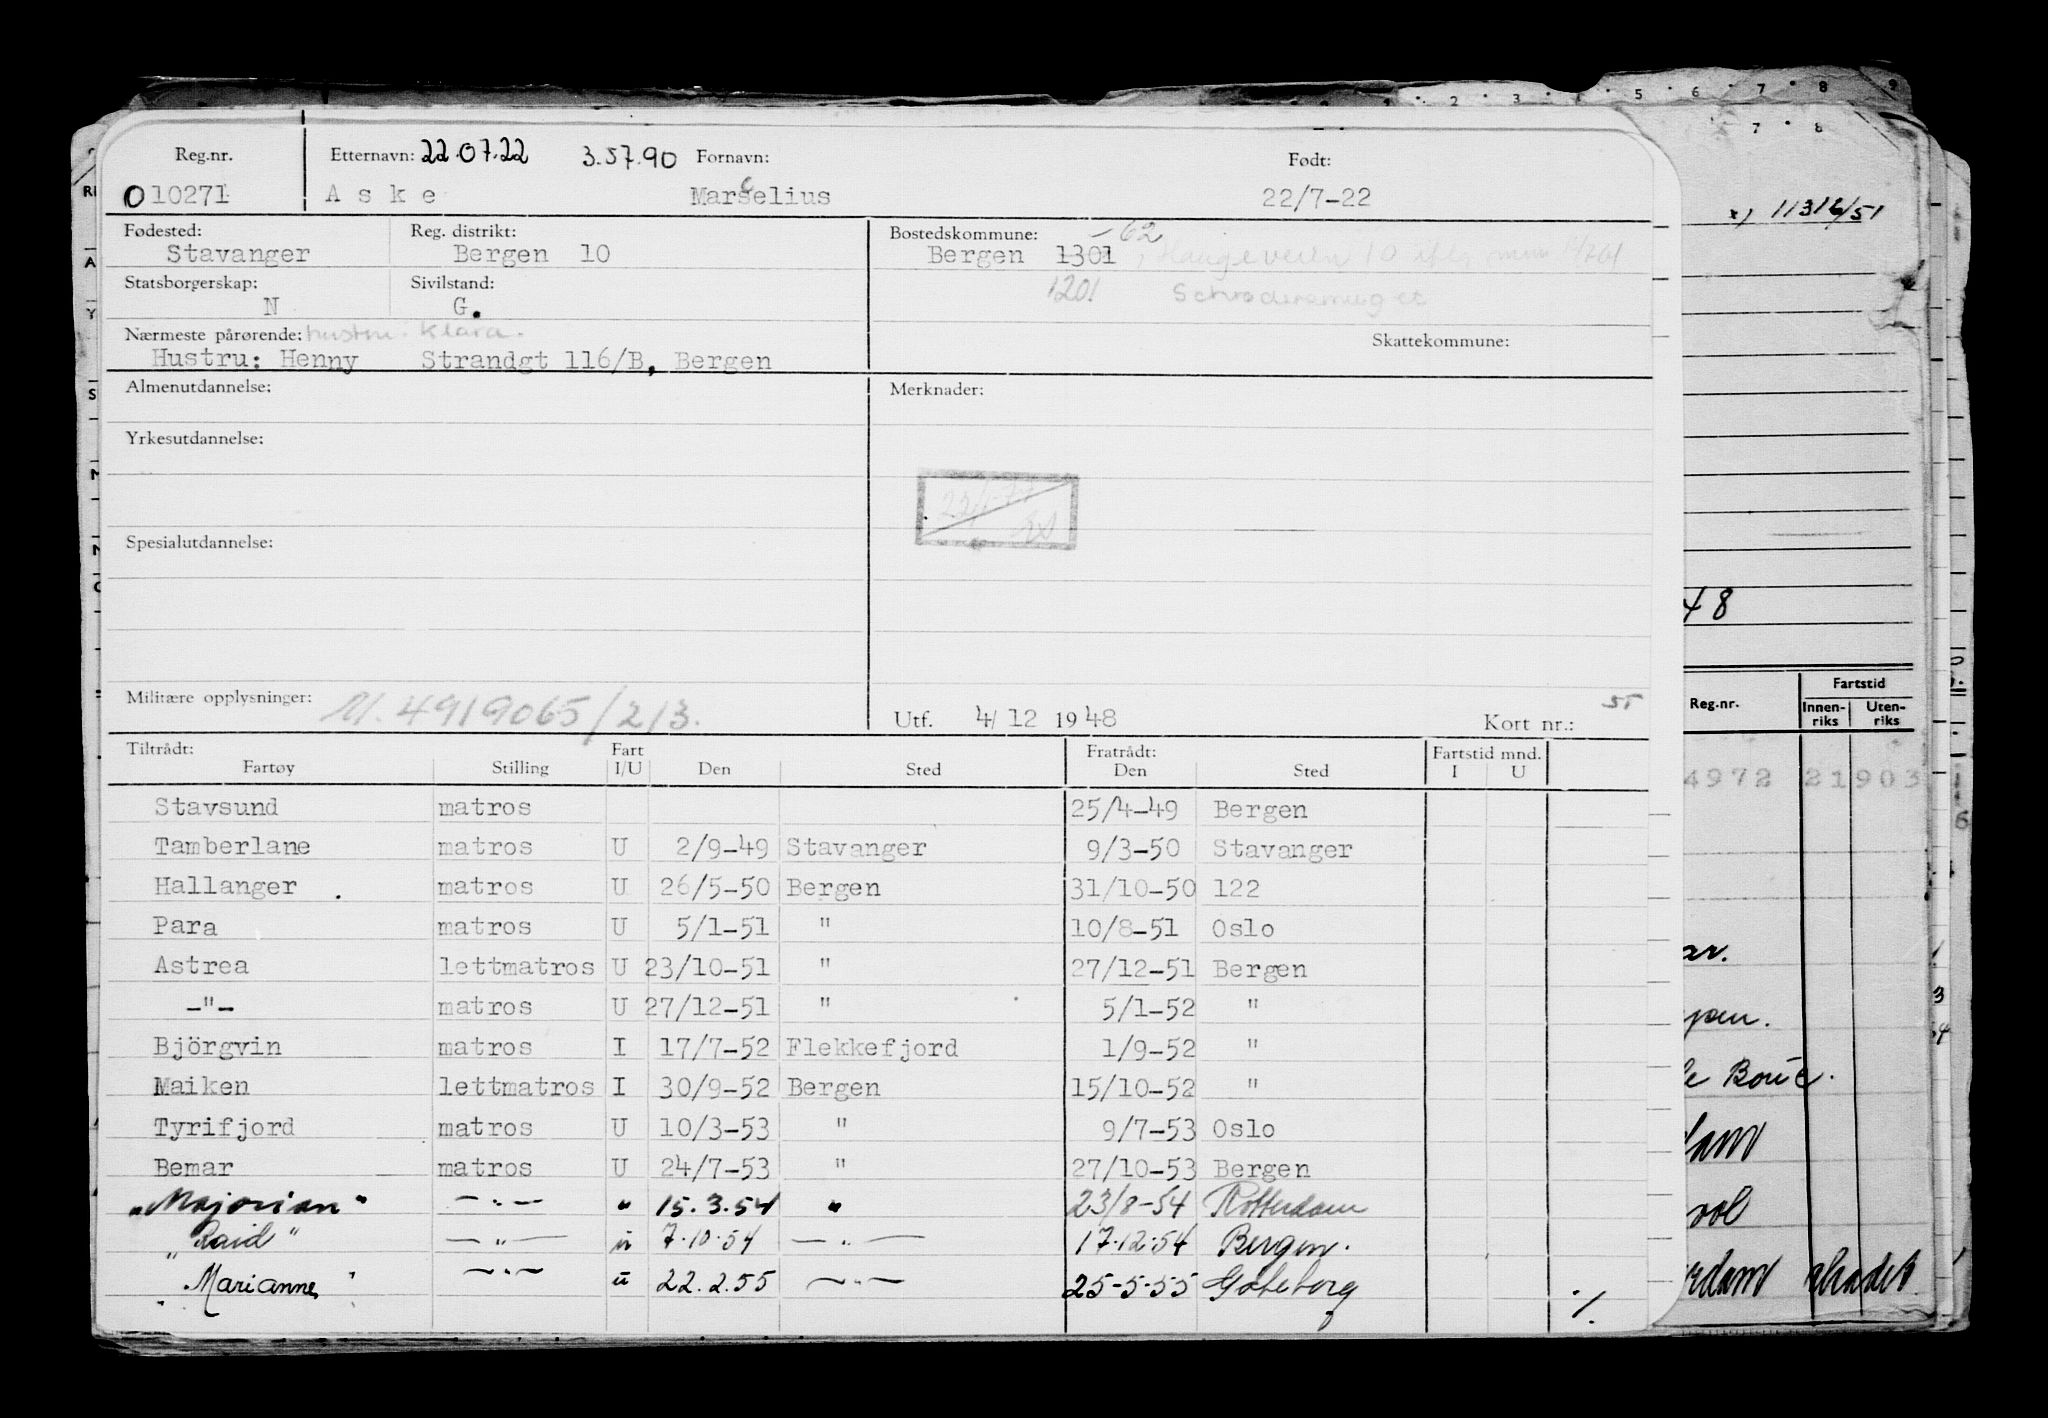 Reg.nr. Etternavn: 22.07.22 3.57.90 Fornavn: Født:
010271 Aske Marcelius 22/7-22
Fødested: Reg. distrikt: Bostedskommune: -62
Stavanger Bergen 10 Bergen 1301
1201
Statsborgerskap: Sivilstand:
N G.
Nærmeste pårørende: hustru: Klara. Skattekommune:
Hustru: Henny Strandgt 116/B, Bergen
Almenutdannelse: Merknader:
Yrkesutdannelse:
Spesialutdannelse:
Militære opplysninger: M. 4919065/213. Utf. 4/12 1948 Kort nr.: 55
Tiltrådt: Fart Fratrådt: Fartstid mnd.
Fartøy Stilling I/U Den Sted Den Sted I U
Stavsund matros 25/4-49 Bergen
Tamberlane matros U 2/9-49 Stavanger 9/3-50 Stavanger
Hallanger . matros U 26/5-50 Bergen 31/10-50 122
Para matros U 5/1-51 " 10/8-51 Oslo
Astrea lettmatros U 23/10-51 " 27/12-51 Bergen
-"- matros U 27/12-51 " 5/1-52 "
Björgvin matros I 17/7-52 Flekkefjord 1/9-52 "
Maiken lettmatros I 30/9-52 Bergen 15/10-52 "
Tyrifjord matros U 10/3-53 " 9/7-53 Oslo
Bemar matros U 24/7-53 " 27/10-53 Bergen
"Majorian" -"- " 15.3.54 " 23/8-54 Rotterdam
"Raid" -"- u 7.10.54 -"- 17.12.54 Bergen.
"Marianne" -"- u 22.2.55 -"- 25-5-55 Göteborg
./.
x) 11316/51
48
Reg.nr. Fartstid
Innen-riks Uten-riks
4972 21903